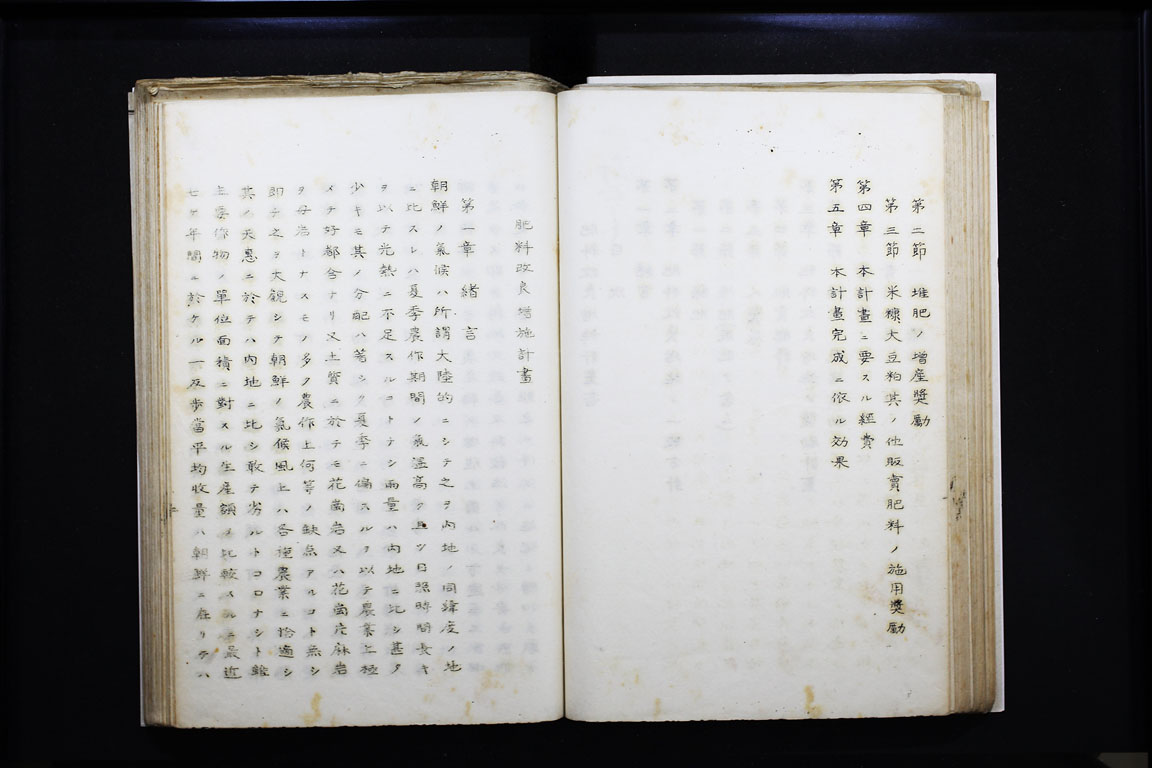 第二節 堆肥ノ增產奬勵
第三節 米糠大豆粕其ノ他販賣肥料ノ施用奬勵
第四章 本計畫ニ要スル經費
第五章 本計畫完成ニ依ル効果
肥料改良增施計畫
第一章 緖言
朝鮮ノ氣候ハ所謂大陸的ニシテ之ヲ內地ノ同緯度ノ地
ニ比スレハ夏季農作期間ノ氣溫高ク且ツ日照時間長キ
ヲ以テ光熱ニ不足スルコトナシ雨量ハ內地ニ比シ甚タ
少キモ其ノ分配ハ著シク夏季ニ偏スルヲ以テ農業上極
メテ好都合ナリ又土質ニ於テモ花崗岩又ハ花崗片麻岩
ヲ母岩トナスモノ多ク農作上何等ノ缺点アルコト無シ
卽チ之ヲ大觀シテ朝鮮ノ氣候風土ハ各種農業ニ恰適シ
其ノ天惠ニ於テハ內地ニ比シ敢テ劣ルトコロナシト雖
主要作物ノ單位面積ニ對スル生產額ヲ比較スルニ最近
七ケ年間ニ於ケル一反步當平均收量ハ朝鮮ニ在リテハ